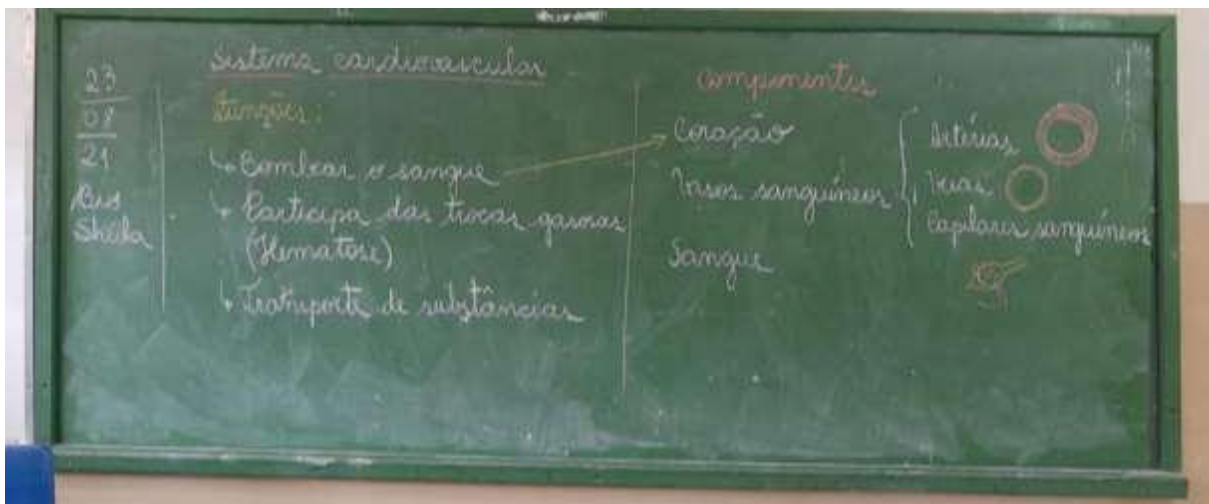 23
08
21
Bio
Sheila
Sistema cardiovascular
Funções:
Bombear o sangue
Participa das trocas gasosas
(Hematose)
Transporte de substâncias
Componentes
Coração
Vasos sanguíneos
Artérias
Veias
Capilares sanguíneos
Sangue